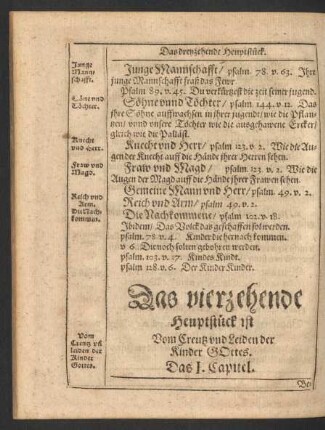 Das dreyzehende Heuptstück.
Junge Mannschafft.
Junge Mannschafft / psalm. 78. v. 63. Ihre
junge Mannschafft fraß das Fewr
Psalm 89. v. 45. Du verkürtzest die zeit seiner jugend.
Söhne vnnd Töchter.
Söhne vnnd Töchter / psalm. 144. v. 12. Das
jhre Söhne auffwachsen in jhrer jugendt / wie die Pflan-
tzen / vnnd vnsere Töchter wie die außgehawene Ercker /
gleich wie die Pallast.
Knecht vnd Herr.
Knecht vnd Herr / psalm 123. v. 2. Wie die Au-
gen der Knecht auff die Hände jhrer Herren sehen.
Fraw vnd Magd.
Fraw vnd Magd / psalm 123. v. 2. Wie die
Augen der Magd auff die Hände jhrer Frawen sehen.
Gemeine Mann vnd Herr / psalm. 49. v. 2.
Reich vnd Arm.
Reich vnd Arm / psalm 49. v. 2.
Die Nachkommen.
Die Nachkommene / psalm 102. v. 18.
Ibidem / Das Volck das geschaffen sol werden.
psalm. 78. v. 4. Kinder die hernach kommen.
v. 6. Die noch solten gebohren werden.
psalm. 103. v. 17. Kindes Kindt.
psalm 128. v. 6. Der Kinder Kinder.
Das vierzehende
Heuptstück ist
Vom Creutz vñ Leiden der Kinder Gottes.
Vom Creutz vnd Leiden der
Kinder GOttes.
Das I. Capittel.